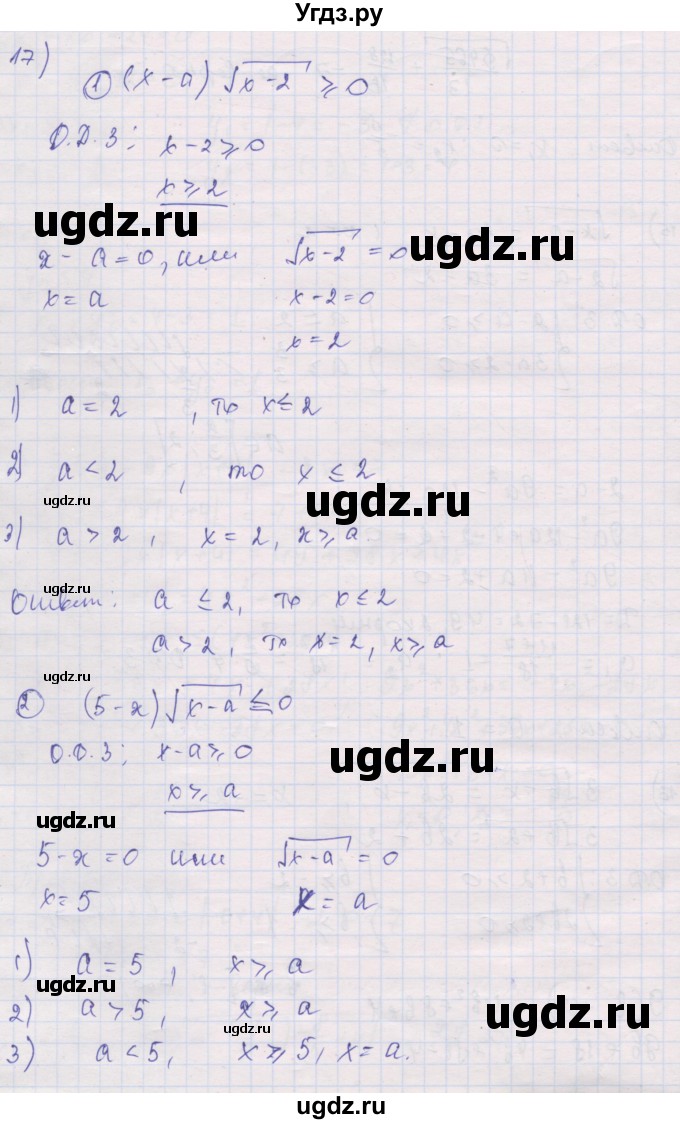 Угдз.ру
17)
① (x-a)√x-2 ⩾ 0
О.Д.З: x-2⩾0
x⩾2
ugdz.ru ugdz.ru
x-a=0, или √x-2 = 0
x=a x-2=0
x=2
1) a=2, то x≤2
2) a<2, то x≤2
ugdz.ru ugdz.ru
3) a>2, x=2, x⩾a
ugdz.ru
Ответ: a≤2, то x≤2
a>2, то x=2, x⩾a
ugdz.ru
② (5-x)√x-a ≤0
О.Д.З: x-a⩾0
ugdz.ru
x⩾a
ugdz.ru
5-x=0 или √x-a = 0
x=5 x=a
ugdz.ru
1) a=5, x⩾a
ugdz.ru
2) a>5, x⩾a
ugdz.ru ugdz.ru
3) a<5, x⩾5, x=a.
ugdz.ru